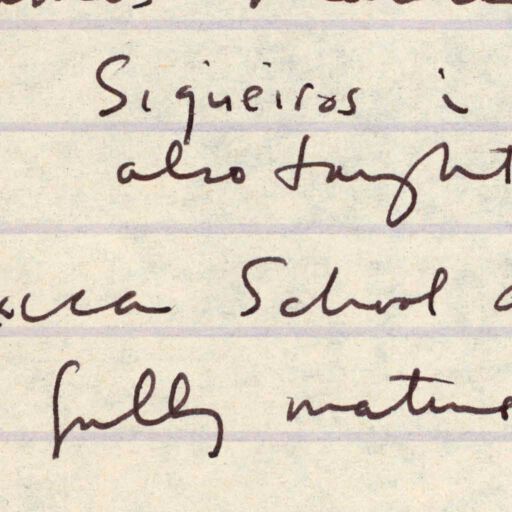 Siqueiros i
also taught
School
fully mature